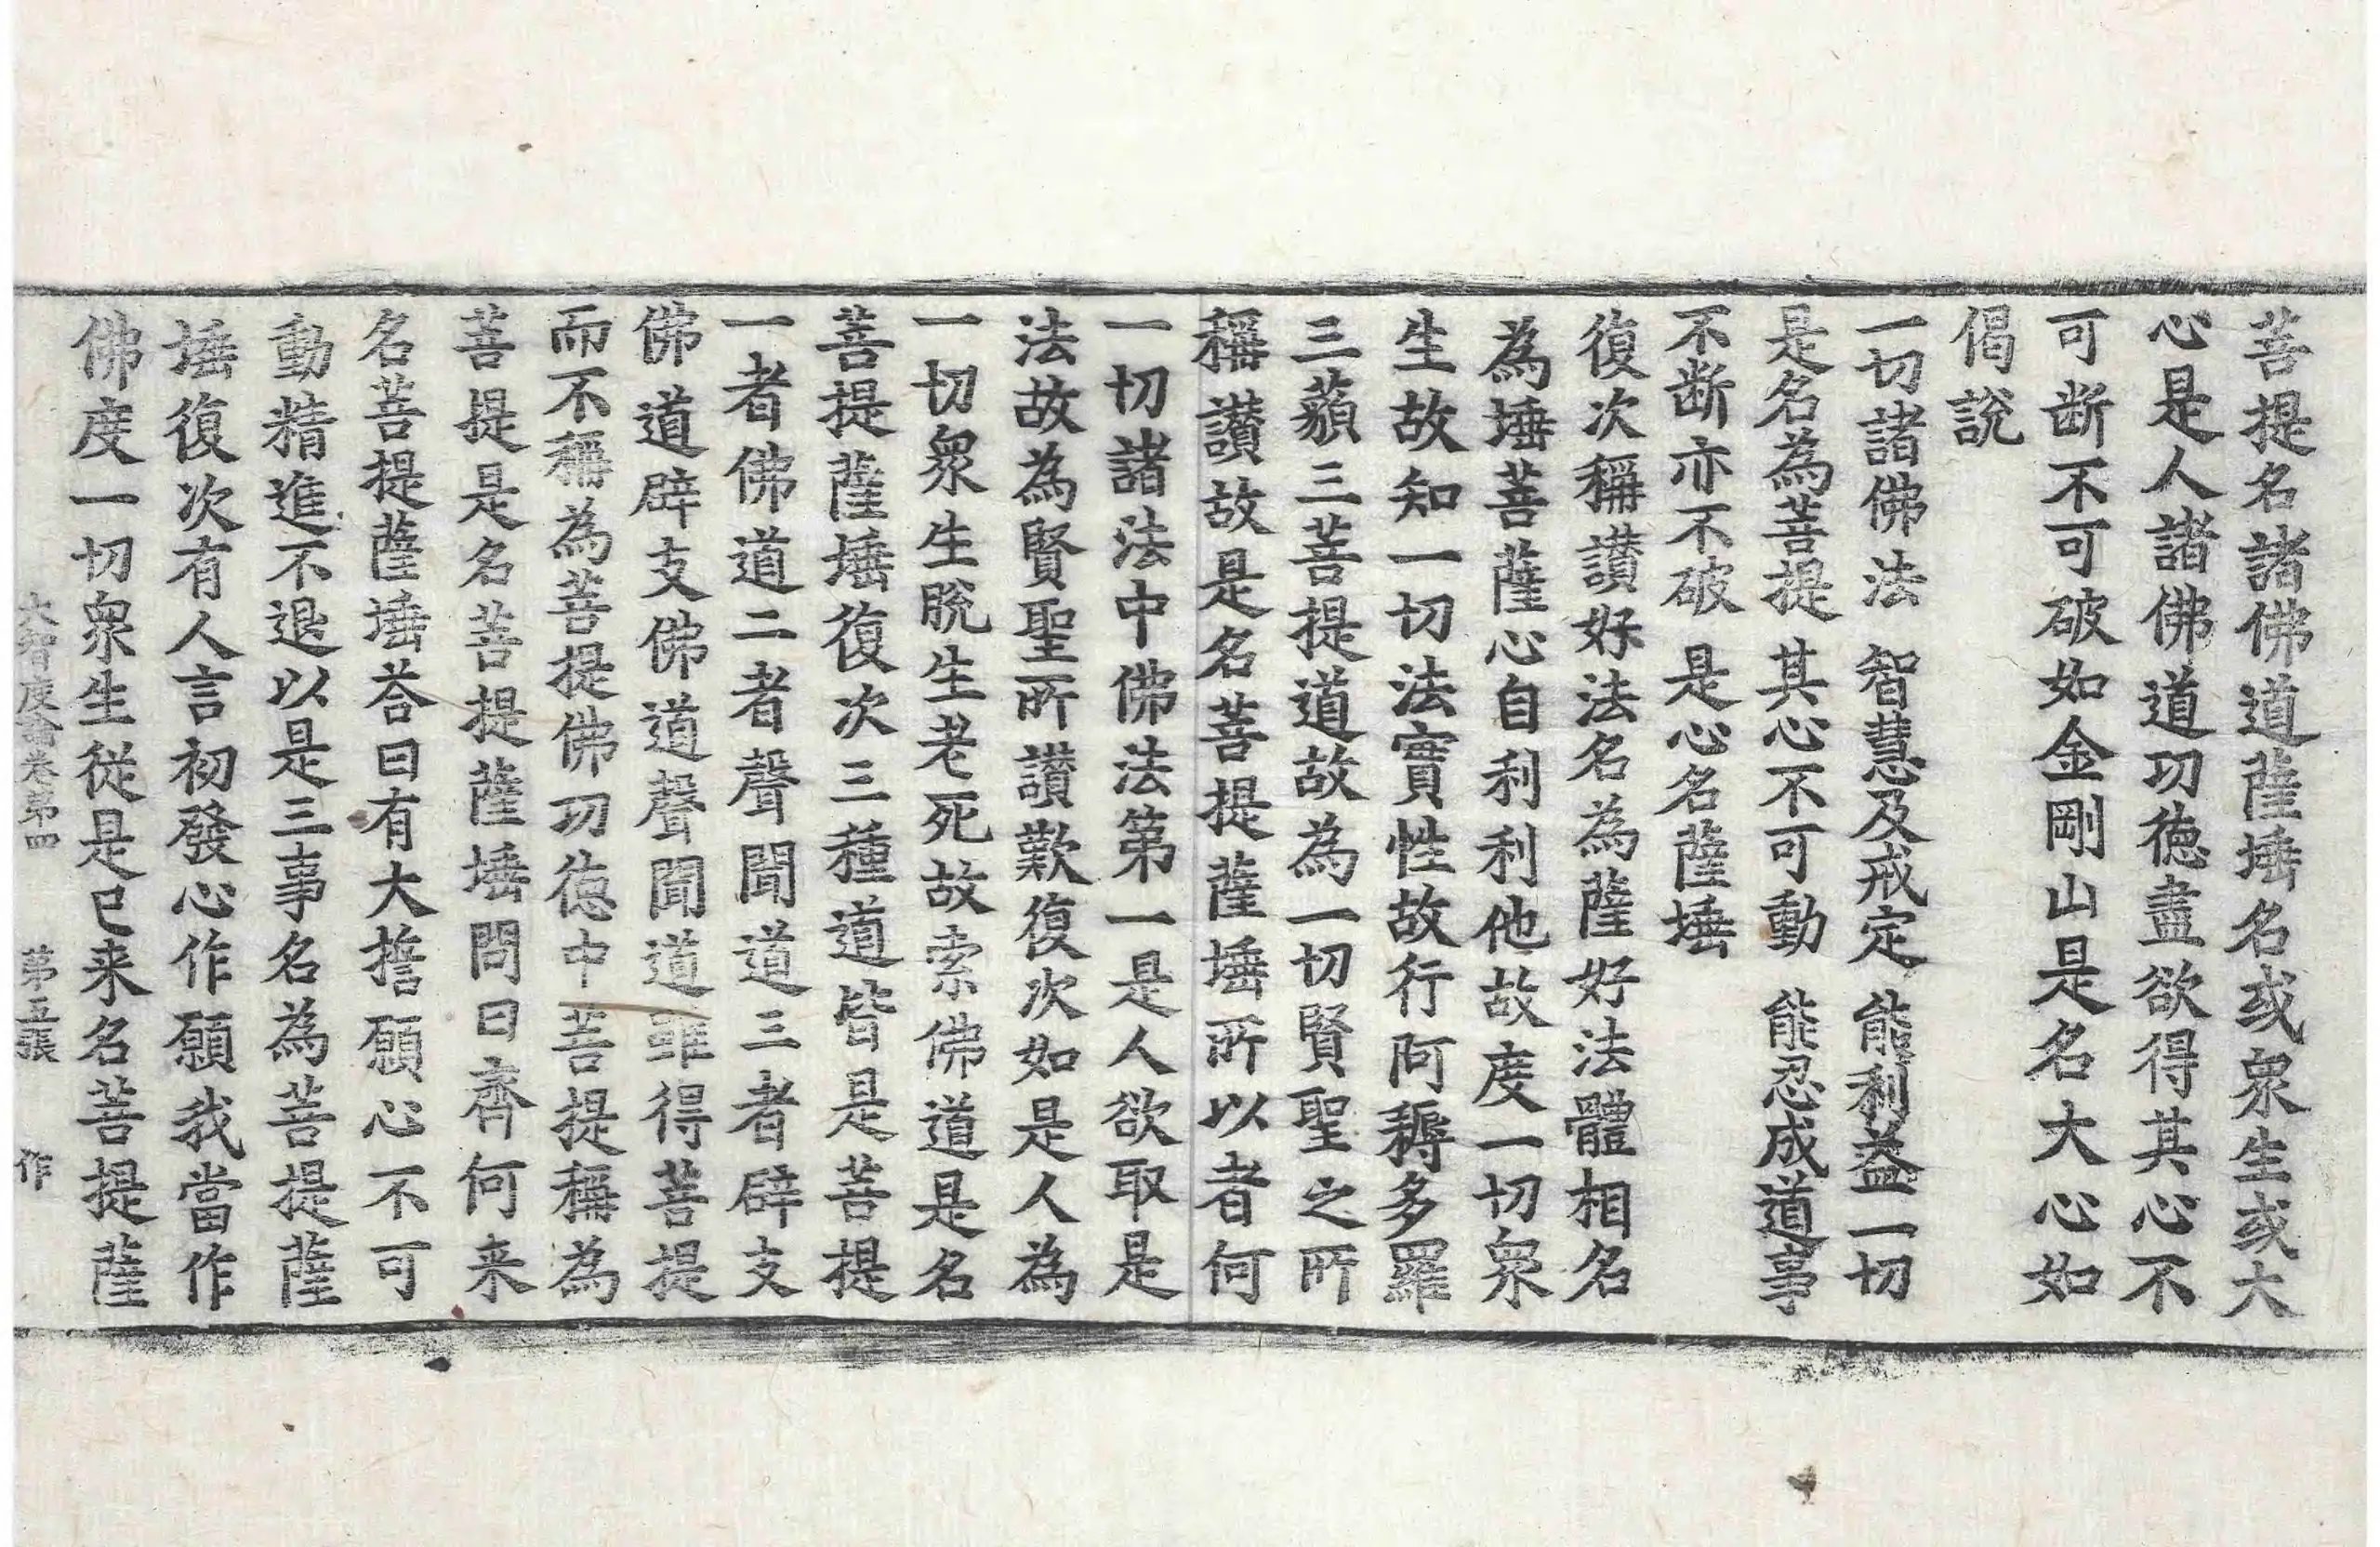 菩提名諸佛道薩埵名或衆生或大
心是人諸佛道功德盡欲得其心不
可断不可破如金剛山是名大心如
偈說
一切諸佛法　智慧及戒定　能利益一切
是名為菩提　其心不可動　能忍成道事
不断亦不破　是心名薩埵
復次稱讃好法名為薩好法體相名
為埵菩薩心自利利他故度一切衆
生故知一切法實性故行阿耨多羅
三藐三菩提道故為一切賢聖之所
稱讃故是名菩提薩埵所以者何
一切諸法中佛法第一是人欲取是
法故為賢聖所讃歎復次如是人為
一切衆生脫生老死故索佛道是名
菩提薩埵復次三種道皆是菩提
一者佛道二者聲聞道三者辟支
佛道辟支佛道聲聞道雖得菩提
而不稱為菩提佛功德中菩提稱為
菩提是名菩提薩埵問曰齊何来
名菩提薩埵荅曰有大誓願心不可
動精進不退以是三事名為菩提薩
埵復次有人言初發心作願我當作
佛度一切衆生從是已来名菩提薩
大智度論卷第四　第五張　作